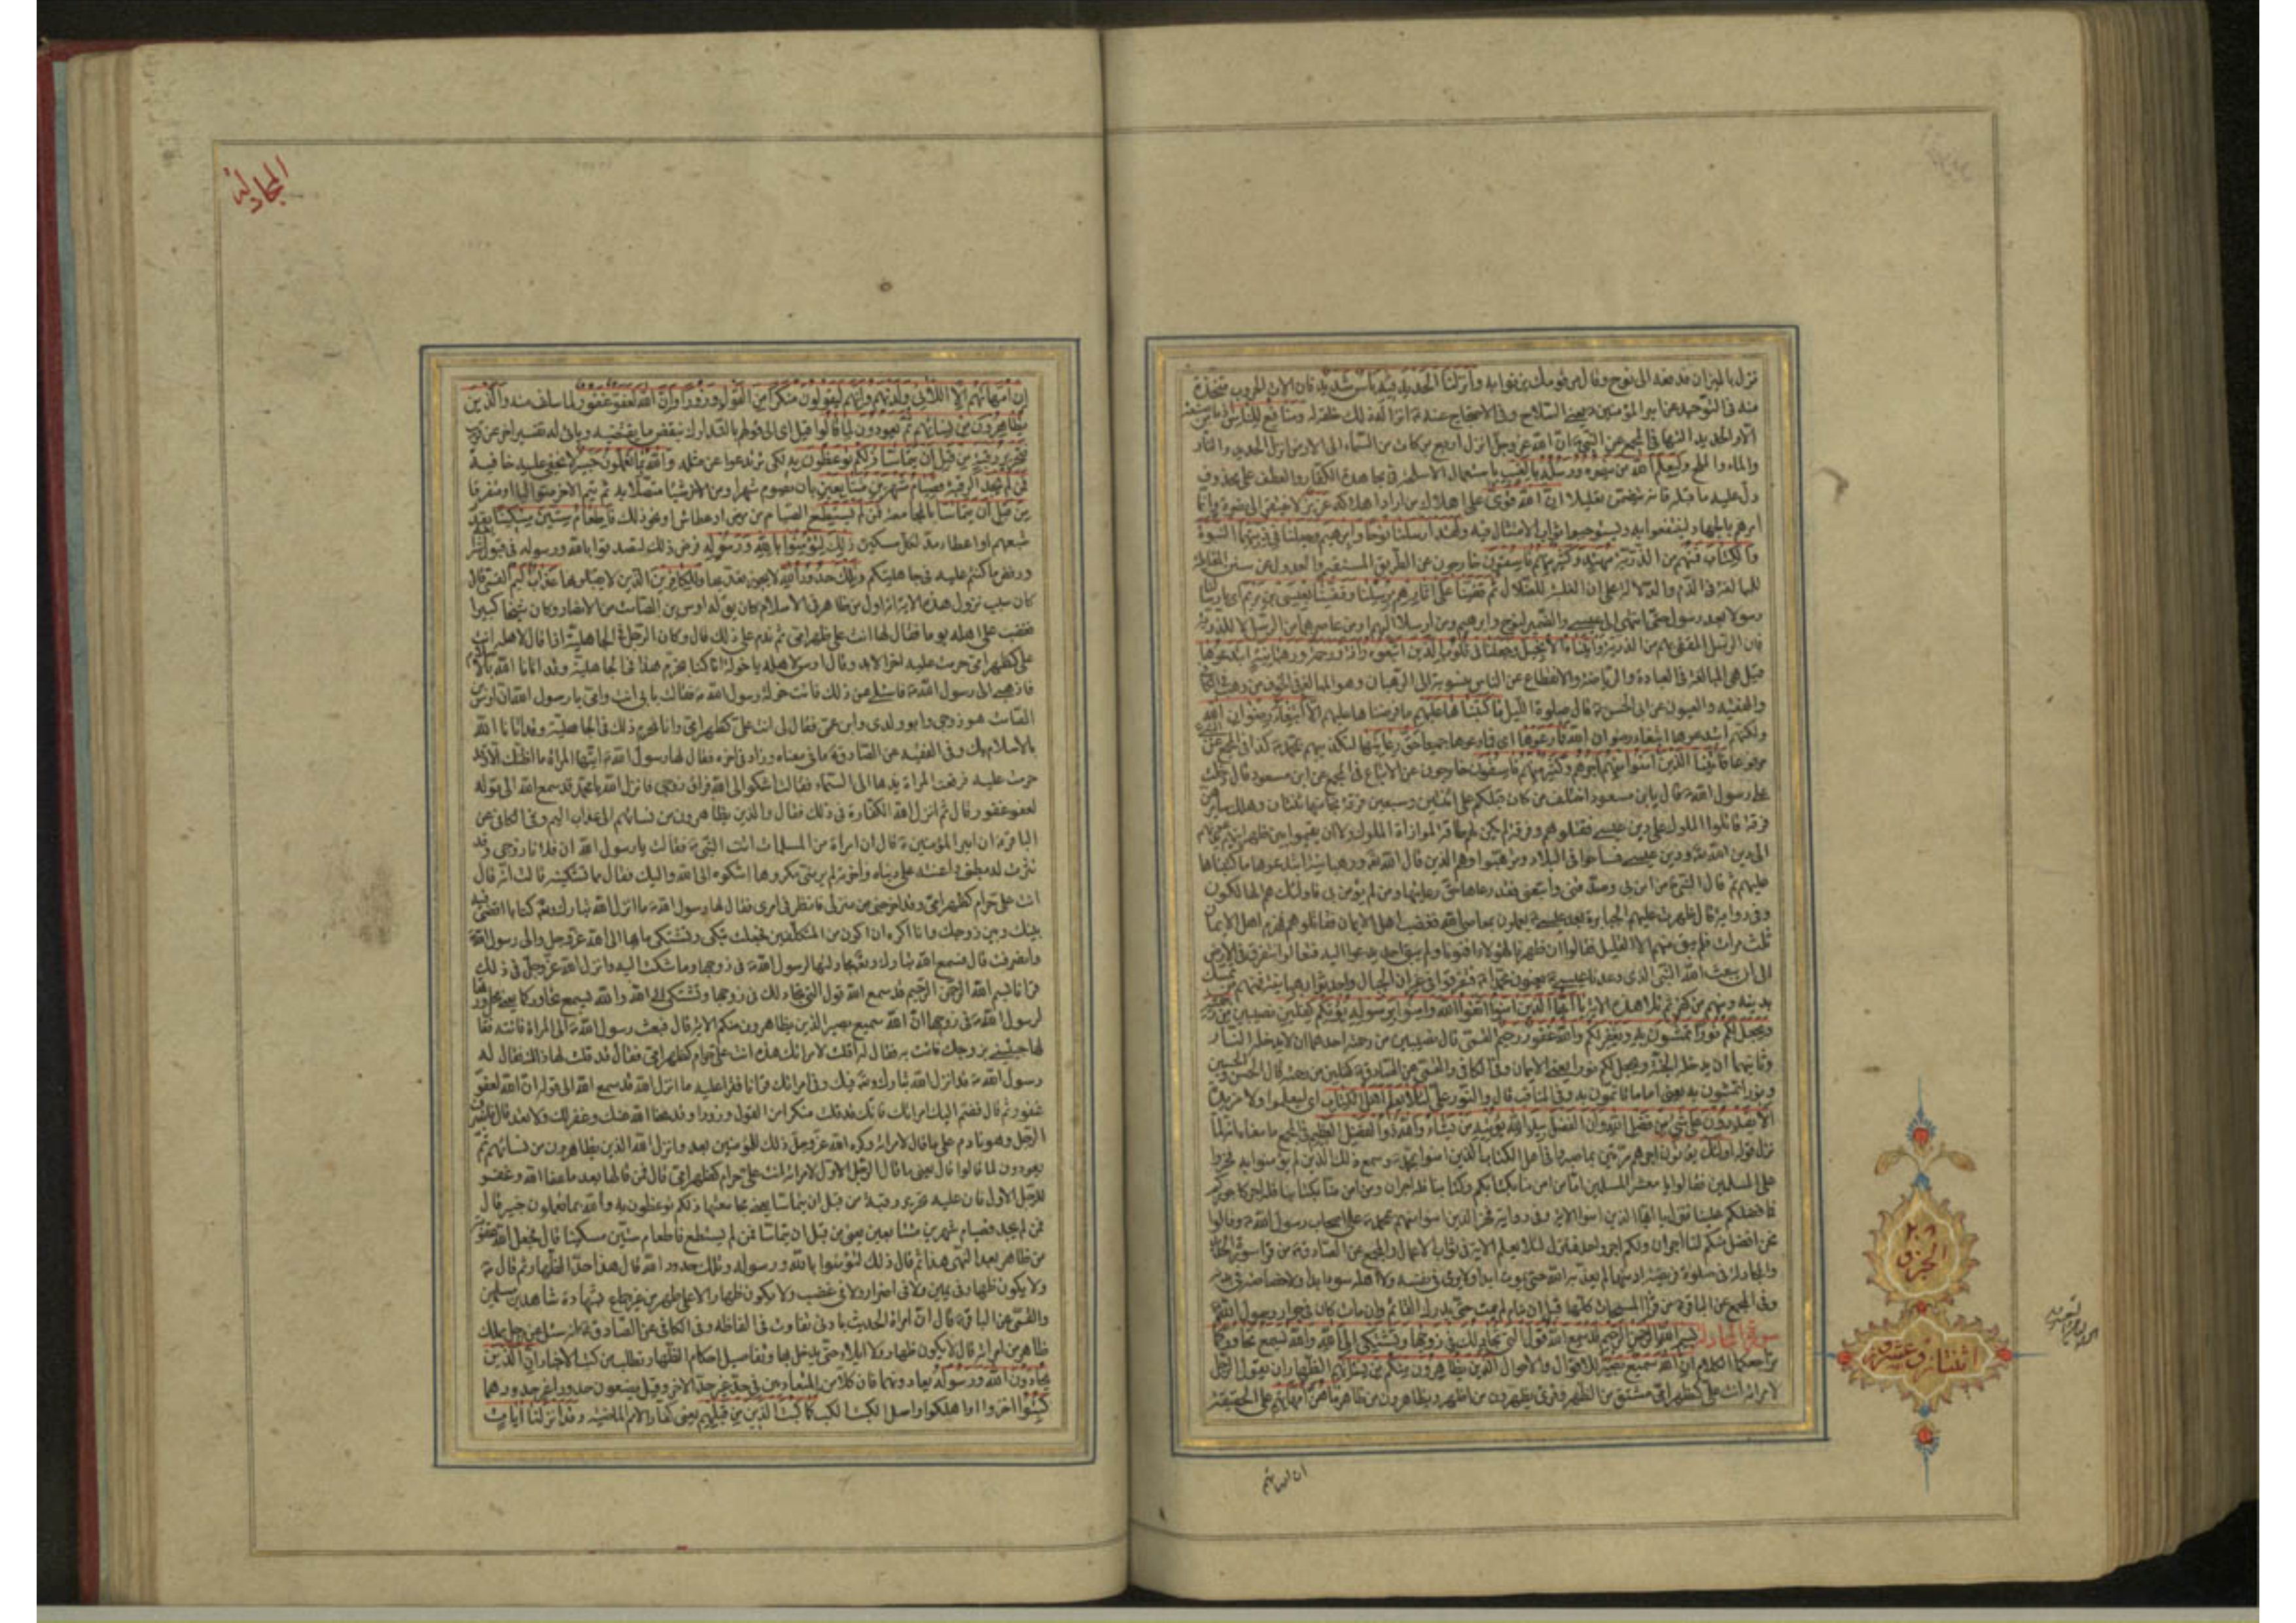 نزل بالميزان فدفعه الى نوح وقال مر قومك يزنوا به وانزلنا الحديد فيه بأس شديد فان الات الحروب متخذة
منه فى التوحيد عن امير المؤمنين يعنى السلاح وفى الاحتجاج عنه انزاله ذلك خلقه له ومنافع للناس
الا والحديد التها فى المجمع عن النبى ان الله عز وجل انزل اربع بركات من السماء الى الارض انزل الحديد والنار
والماء والملح وليعلم الله من ينصره ورسله بالغيب باستعمال الاسلحة فى مجاهدة الكفار والعطف على محذوف
دل عليه ما قبله فانه يتضمن تعليلا ان الله قوى على اهلاك من اراد اهلاكه عزيز لا يفتقر الى نصرة وانما
امرهم بالجهاد لينتفعوا به ويستوجبوا ثواب الامتثال فيه ولقد ارسلنا نوحا وابرهيم وجعلنا فى ذريتهما النبوة
والكتاب فمنهم من الذرية مهتد وكثير منهم فاسقون خارجون عن الطريق المستقيم والعدول عن سنن المقابلة
للمبالغة فى الذم والدلالة على ان الغلبة للضلال ثم قفينا على اثارهم برسلنا وقفينا بعيسى بن مريم اى ارسلنا
رسولا بعد رسول حتى انتهى الى عيسى والضمير لنوح وابرهيم ومن ارسلا اليهم او من عاصرهما من الرسل لا للذرية
فان الرسل المقفى بهم من الذرية واتيناه الانجيل وجعلنا فى قلوب الذين اتبعوه رأفة ورحمة ورهبانية ابتدعوها
قيل هى المبالغة فى العبادة والرياضة والانقطاع عن الناس منسوبة الى الرهبان وهو المبالغ فى الخوف من رهب
والفقيه والعيون عن ابى الحسن قال صلوة الليل ما كتبناها عليهم ما فرضناها عليهم الا ابتغاء رضوان الله
ولكنهم ابتدعوها ابتغاء رضوان الله فما رعوها اى فما رعوها جميعا حق رعايتها لتكذيبهم بمحمد كذا فى المجمع عن
مرفوعا فاتينا الذين امنوا منهم اجرهم وكثير منهم فاسقون خارجون عن الاتباع فى المجمع عن ابن مسعود قال دخلت
على رسول الله فقال يابن مسعود اختلف من كان قبلكم على اثنتين وسبعين فرقة نجا منها ثنتان وهلك سايرهن
فرقة قاتلوا الملوك على دين عيسى فقتلوهم وفرقة لم يكن لهم طاقة لموازاة الملوك ولا ان يقيموا بين ظهرانيهم
الى دين الله ودين عيسى فساحوا فى البلاد وترهبوا وهم الذين قال الله ورهبانية ابتدعوها ما كتبناها
عليهم ثم قال النبى من امن بى وصدقنى واتبعنى فقد رعاها حق رعايتها ومن لم يؤمن بى فاولئك هم الهالكون
وفى رواية قال ظهرت عليهم الجبابرة بعد عيسى يعملون بمعاصى الله فغضب اهل الايمان فقاتلوهم فهزم اهل الايمان
ثلث مرات فلم يبق منهم الا القليل فقالوا ان ظهرنا لهؤلاء افنونا ولم يبق احد يدعو اليه فتعالوا نتفرق فى الارض
الى ان يبعث الله النبى الذى وعدنا عيسى يعنون محمدا فتفرقوا فى غيران الجبال واحدثوا رهبانية فمنهم من تمسك
بدينه ومنهم من كفر ثم تلا هذه الاية يا ايها الذين امنوا اتقوا الله وامنوا برسوله يؤتكم كفلين نصيبين من
ويجعل لكم نورا تمشون به ويغفر لكم والله غفور رحيم القمى قال نصيبين من رحمته احدهما ان لا يدخله النار
وثانيهما ان يدخله الجنة ويجعل لكم نورا يعنى الايمان وفى الكافى والقمى عن الصادق كفلين من رحمته قال الحسن والحسين
ونورا تمشون به يعنى اماما تاتمون به وفى المناقب قال والنور على لئلا يعلم اهل الكتاب اى ليعلموا ولا مزيدة
الا يقدرون على شئ من فضل الله وان الفضل بيد الله يؤتيه من يشاء والله ذو الفضل العظيم فى المجمع ما معناه انه لما
نزل قوله اولئك يؤتون اجرهم مرتين بما صبروا فى اهل الكتاب الذين امنوا بمحمد وسمع ذلك الذين لم يؤمنوا به فخروا
على المسلمين فقالوا يا معشر المسلمين اما من امن منا بكتابكم وكتابنا فله اجران ومن امن منا بكتابنا فله اجر كاجوركم
فما فضلكم علينا فنزل يا ايها الذين امنوا الاية وفى رواية فخر الذين امنوا منهم بمحمد على اصحاب رسول الله وقالوا
نحن افضل منكم لنا اجران ولكم اجر واحد فنزل لئلا يعلم الاية فى ثواب الاعمال والمجمع عن الصادق من قرا سورة الحديد
والمجادلة فى صلوة فريضة ادمنها لم يعذبه الله حتى يموت ابدا ولا يرى فى نفسه ولا اهله سوءا ابدا ولا خصاصة فى بدنه
وفى المجمع عن الباقر من قرا المسبحات كلها قبل ان ينام لم يمت حتى يدرك القائم وان مات كان فى جوار رسول الله
سورة المجادلة بسم الله الرحمن الرحيم قد سمع الله قول التى تجادلك فى زوجها وتشتكى الى الله والله يسمع تحاوركما
تراجعكما الكلام ان الله سميع بصير للاقوال والاحوال الذين يظاهرون منكم من نسائهم الظهار ان يقول الرجل
لامراته انت على كظهر امى مشتق من الظهر وقرئ يظهرون من اظهر ويظاهرون من ظاهر ما هن امهاتهم على الحقيقة
ان امهاتهم
الجزو ٢٨
اثنتان وعشرون
المجادلة
ان امهاتهم الا اللائى ولدنهم وانهم ليقولون منكرا من القول وزورا وان الله لعفو غفور لما سلف منه والذين
يظاهرون من نسائهم ثم يعودون لما قالوا قيل اى الى قولهم بالتدارك بنقض ما يقتضيه وياتى له تفسير اخر عن قريب
فتحرير رقبة من قبل ان يتماسا ذلكم توعظون به لكى ترتدعوا عن مثله والله بما تعملون خبير لا يخفى عليه خافية
فمن لم يجد الرقبة فصيام شهرين متتابعين بان يصوم شهرا ومن الاخر شيئا متصلا به ثم يتم الاخر متواليا او متفرقا
من قبل ان يتماسا بالمجامعة فمن لم يستطع الصيام من مرض او عطاش او نحو ذلك فاطعام ستين مسكينا بقدر
شبعهم او اعطاء مد لكل مسكين ذلك لتؤمنوا بالله ورسوله فرض ذلك لتصدقوا بالله ورسوله فى قبول
ورفض ما كنتم عليه فى جاهليتكم وتلك حدود الله لا يجوز تعديها وللكافرين الذين لا يقبلونها عذاب اليم القمى قال
كان سبب نزول هذه الاية انه اول من ظاهر فى الاسلام كان يق له اوس بن الصامت من الانصار وكان شيخا كبيرا
فغضب على اهله يوما فقال لها انت على كظهر امى ثم ندم على ذلك قال وكان الرجل فى الجاهلية اذا قال لاهله انت
على كظهر امى حرمت عليه اخر الابد وقال اوس لاهله يا خولة انا كنا نحرم هذا فى الجاهلية وقد اتانا الله بالاسلام
فاذهبى الى رسول الله فاسئليه عن ذلك فاتت خولة رسول الله فقالت بابى انت وامى يا رسول الله ان اوس بن
الصامت هو زوجى وابو ولدى وابن عمى فقال لى انت على كظهر امى وانا نحرم ذلك فى الجاهلية وقد اتانا الله
بالاسلام بك وفى الفقيه عن الصادق ما فى معناه وزاد فى اخره فقال لها رسول الله ايتها المراة ما اظنك الا وقد
حرمت عليه فرفعت المراة يدها الى السماء فقالت اشكو الى الله فراق زوجى فانزل الله يا محمد قد سمع الله الى قوله
لعفو غفور قال ثم انزل الله الكفارة فى ذلك فقال والذين يظاهرون من نسائهم الى عذاب اليم وفى الكافى عن
الباقر ان امير المؤمنين قال ان امراة من المسلمات اتت النبى فقالت يا رسول الله ان فلانا زوجى وقد
نثرت له بطنى واعنته على دنياه واخرته لم ير منى مكروها اشكوه الى الله واليك فقال مما تشكينه قالت انه قال
انت على حرام كظهر امى وقد اخرجنى من منزلى فانظر فى امرى فقال لها رسول الله ما انزل الله تبارك وتعالى كتابا اقضى فيه
بينك وبين زوجك وانا اكره ان اكون من المتكلفين فجعلت تبكى وتشتكى ما بها الى الله عز وجل والى رسول الله
وانصرفت قال فسمع الله تبارك وتعالى مجادلتها لرسول الله فى زوجها وما شكت اليه وانزل الله عز وجل فى ذلك
قرانا بسم الله الرحمن الرحيم قد سمع الله قول التى تجادلك فى زوجها وتشتكى الى الله والله يسمع تحاوركما يعنى محاورتها
لرسول الله فى زوجها ان الله سميع بصير الذين يظاهرون منكم الاية قال فبعث رسول الله الى المراة فاتته فقال
لها جيئينى بزوجك فاتت به فقال له اقلت لامراتك هذه انت على حرام كظهر امى فقال قد قلت لها ذلك فقال له
رسول الله قد انزل الله تبارك وتعالى فيك وفى امراتك قرانا فقرا عليه ما انزل الله قد سمع الله الى قوله ان الله لعفو
غفور ثم قال فضم اليك امراتك فانك قد قلت منكرا من القول وزورا وقد عفا الله عنك وغفر لك ولا تعد قال فانصرف
الرجل وهو نادم على ما قال لامراته وكره الله عز وجل ذلك للمؤمنين بعد وانزل الله الذين يظاهرون من نسائهم ثم
يعودون لما قالوا قال يعنى ما قال الرجل الاول لامراته انت على حرام كظهر امى قال فمن قالها بعد ما عفا الله وغفر
للرجل الاول فان عليه تحرير رقبة من قبل ان يتماسا يعنى مجامعتها ذلكم توعظون به والله بما تعملون خبير قال
فمن لم يجد فصيام شهرين متتابعين يعنى من قبل ان يتماسا فمن لم يستطع فاطعام ستين مسكينا قال فجعل الله عقوبة
من ظاهر بعد النهى هذا ثم قال ذلك لتؤمنوا بالله ورسوله وتلك حدود الله قال هذا حد الظهار ثم قال
ولا يكون ظهار فى يمين ولا فى اضرار ولا فى غضب ولا يكون ظهار الا على طهر من غير جماع بشهادة شاهدين مسلمين
والقمى عن الباقر قال ان امراة الحديث بادنى تفاوت فى الفاظه وفى الكافى عن الصادق انه سئل عن رجل يملك
ظاهر من امراته قال لا يكون ظهار ولا ايلاء حتى يدخل بها وتفاصيل احكام الظهار تطلب من كتب الاخبار ان الذين
يحادون الله ورسوله يعادونهما فان كلا من المتعادين فى حد غير حد الاخر وقيل يضعون حدودا غير حدودهما
كبتوا اخزوا او اهلكوا واصل الكبت الكب كما كبت الذين من قبلهم يعنى كفار الامم الماضية وقد انزلنا ايات